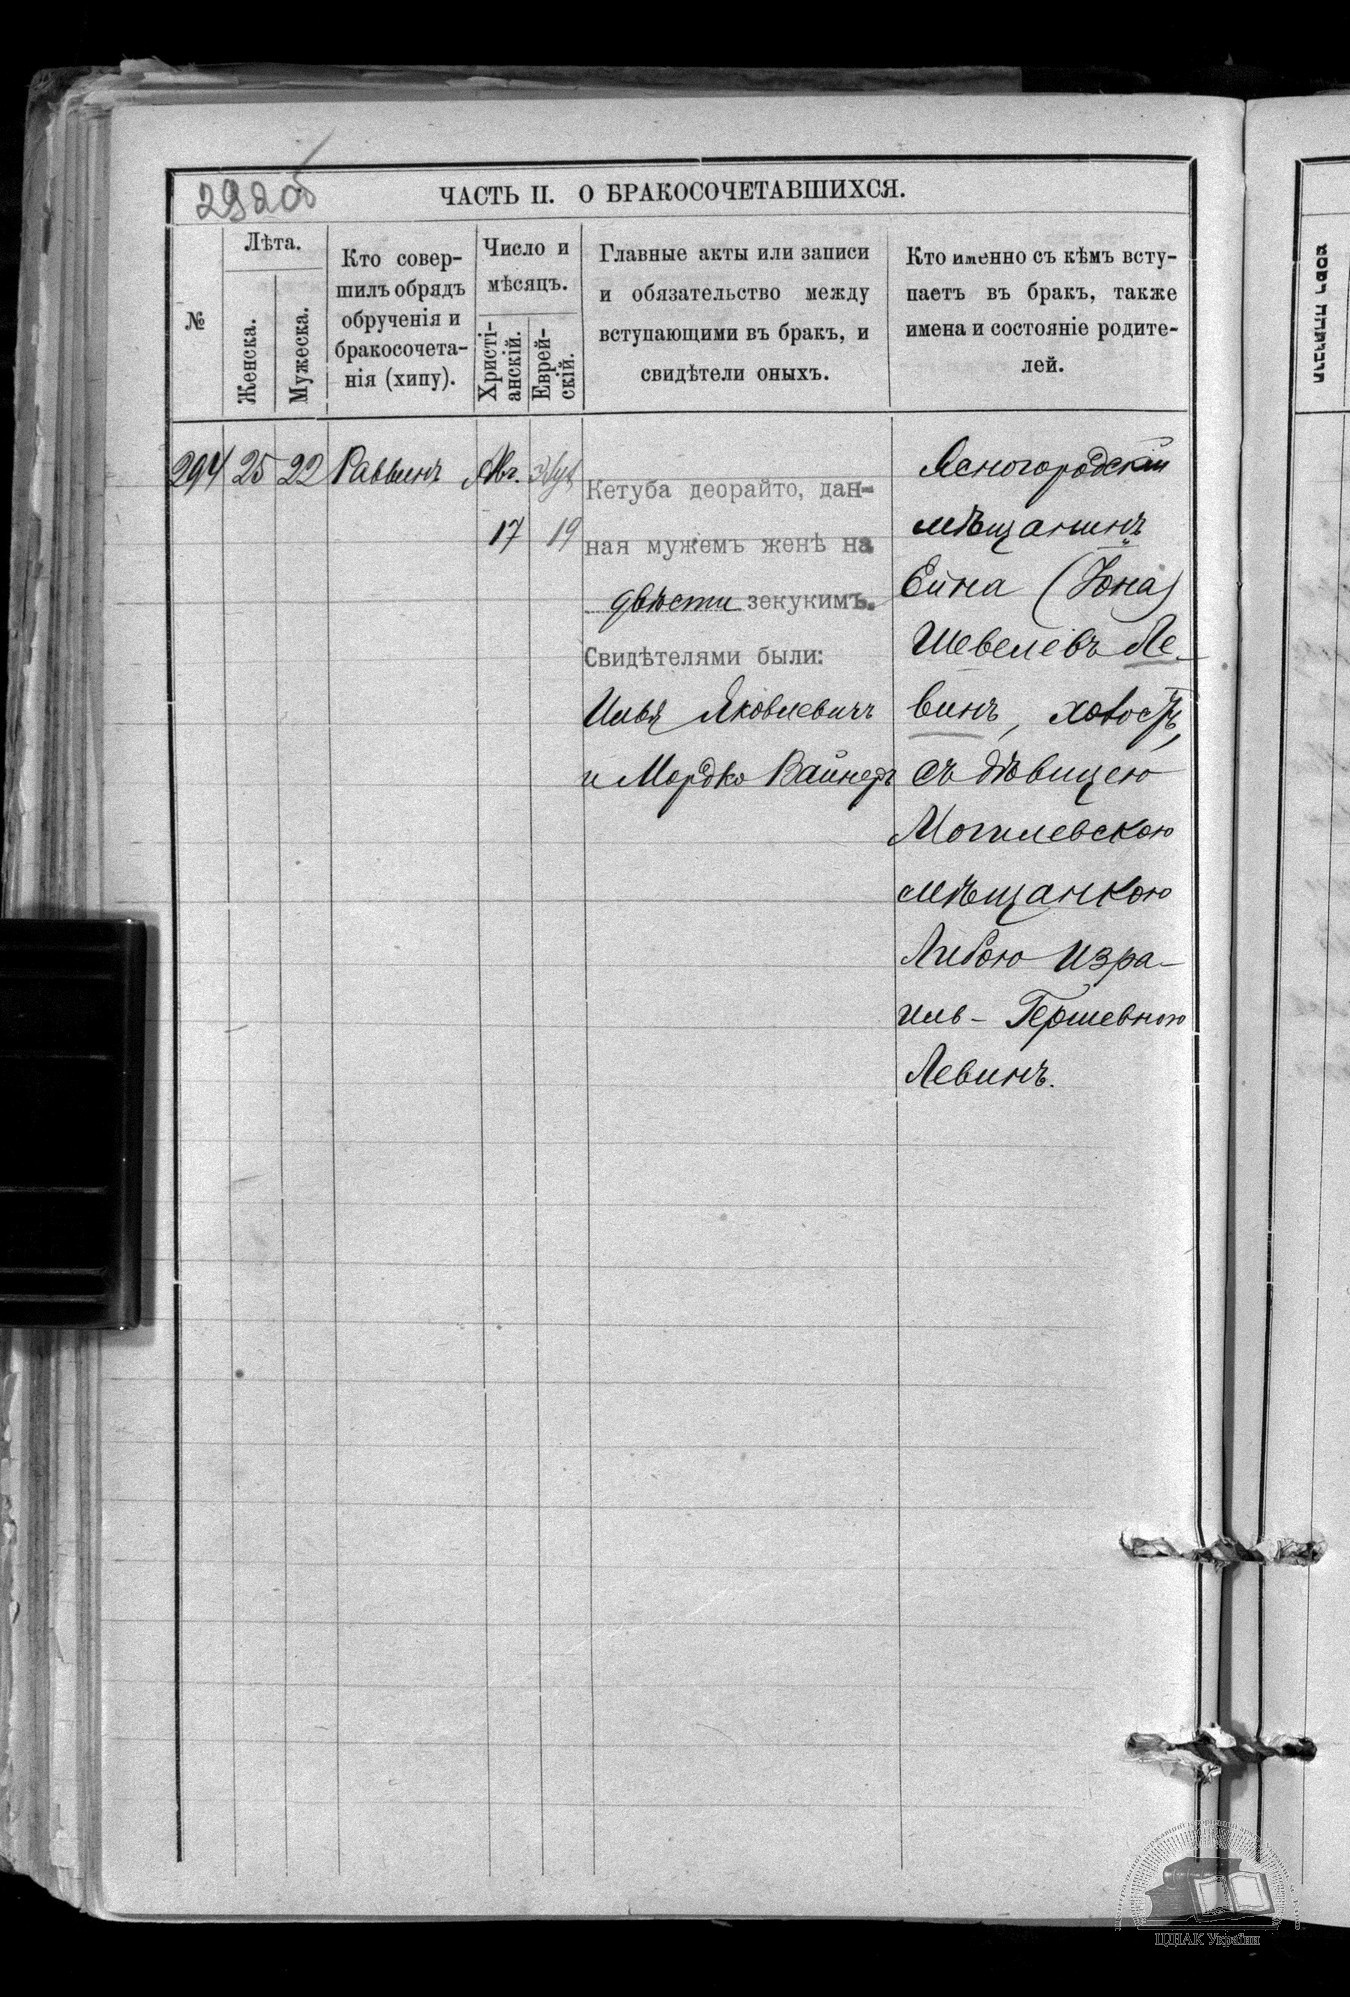 292об
ЧАСТЬ II. О БРАКОСОЧЕТАВШИХСЯ.
№
Лѣта.
Женска.
Мужеска.
Кто совер-
шилъ обрядъ
обрученія и
бракосочета-
нія (хипу).
Число и
мѣсяцъ.
Христі-
анскій.
Еврей-
скій.
Главные акты или записи
и обязательство между
вступающими въ бракъ, и
свидѣтели оныхъ.
Кто именно съ кѣмъ всту-
паетъ въ бракъ, также
имена и состояніе родите-
лей.
294 25 22 Раввинъ Авг.
17 19
Кетуба деорайто, дан-
ная мужемъ женѣ на
двѣсти зекукимъ.
Свидѣтелями были:
Илья Яковлевичъ
и Мордко Вайнеръ
Ясногородскій
мѣщанинъ
Ейна (Іона)
Шевелевъ Ле-
винъ, холостъ,
съ дѣвицею
Могилевскою
мѣщанкою
Либою Изра-
иль-Гершевною
Левинъ.
ЦДІАК України